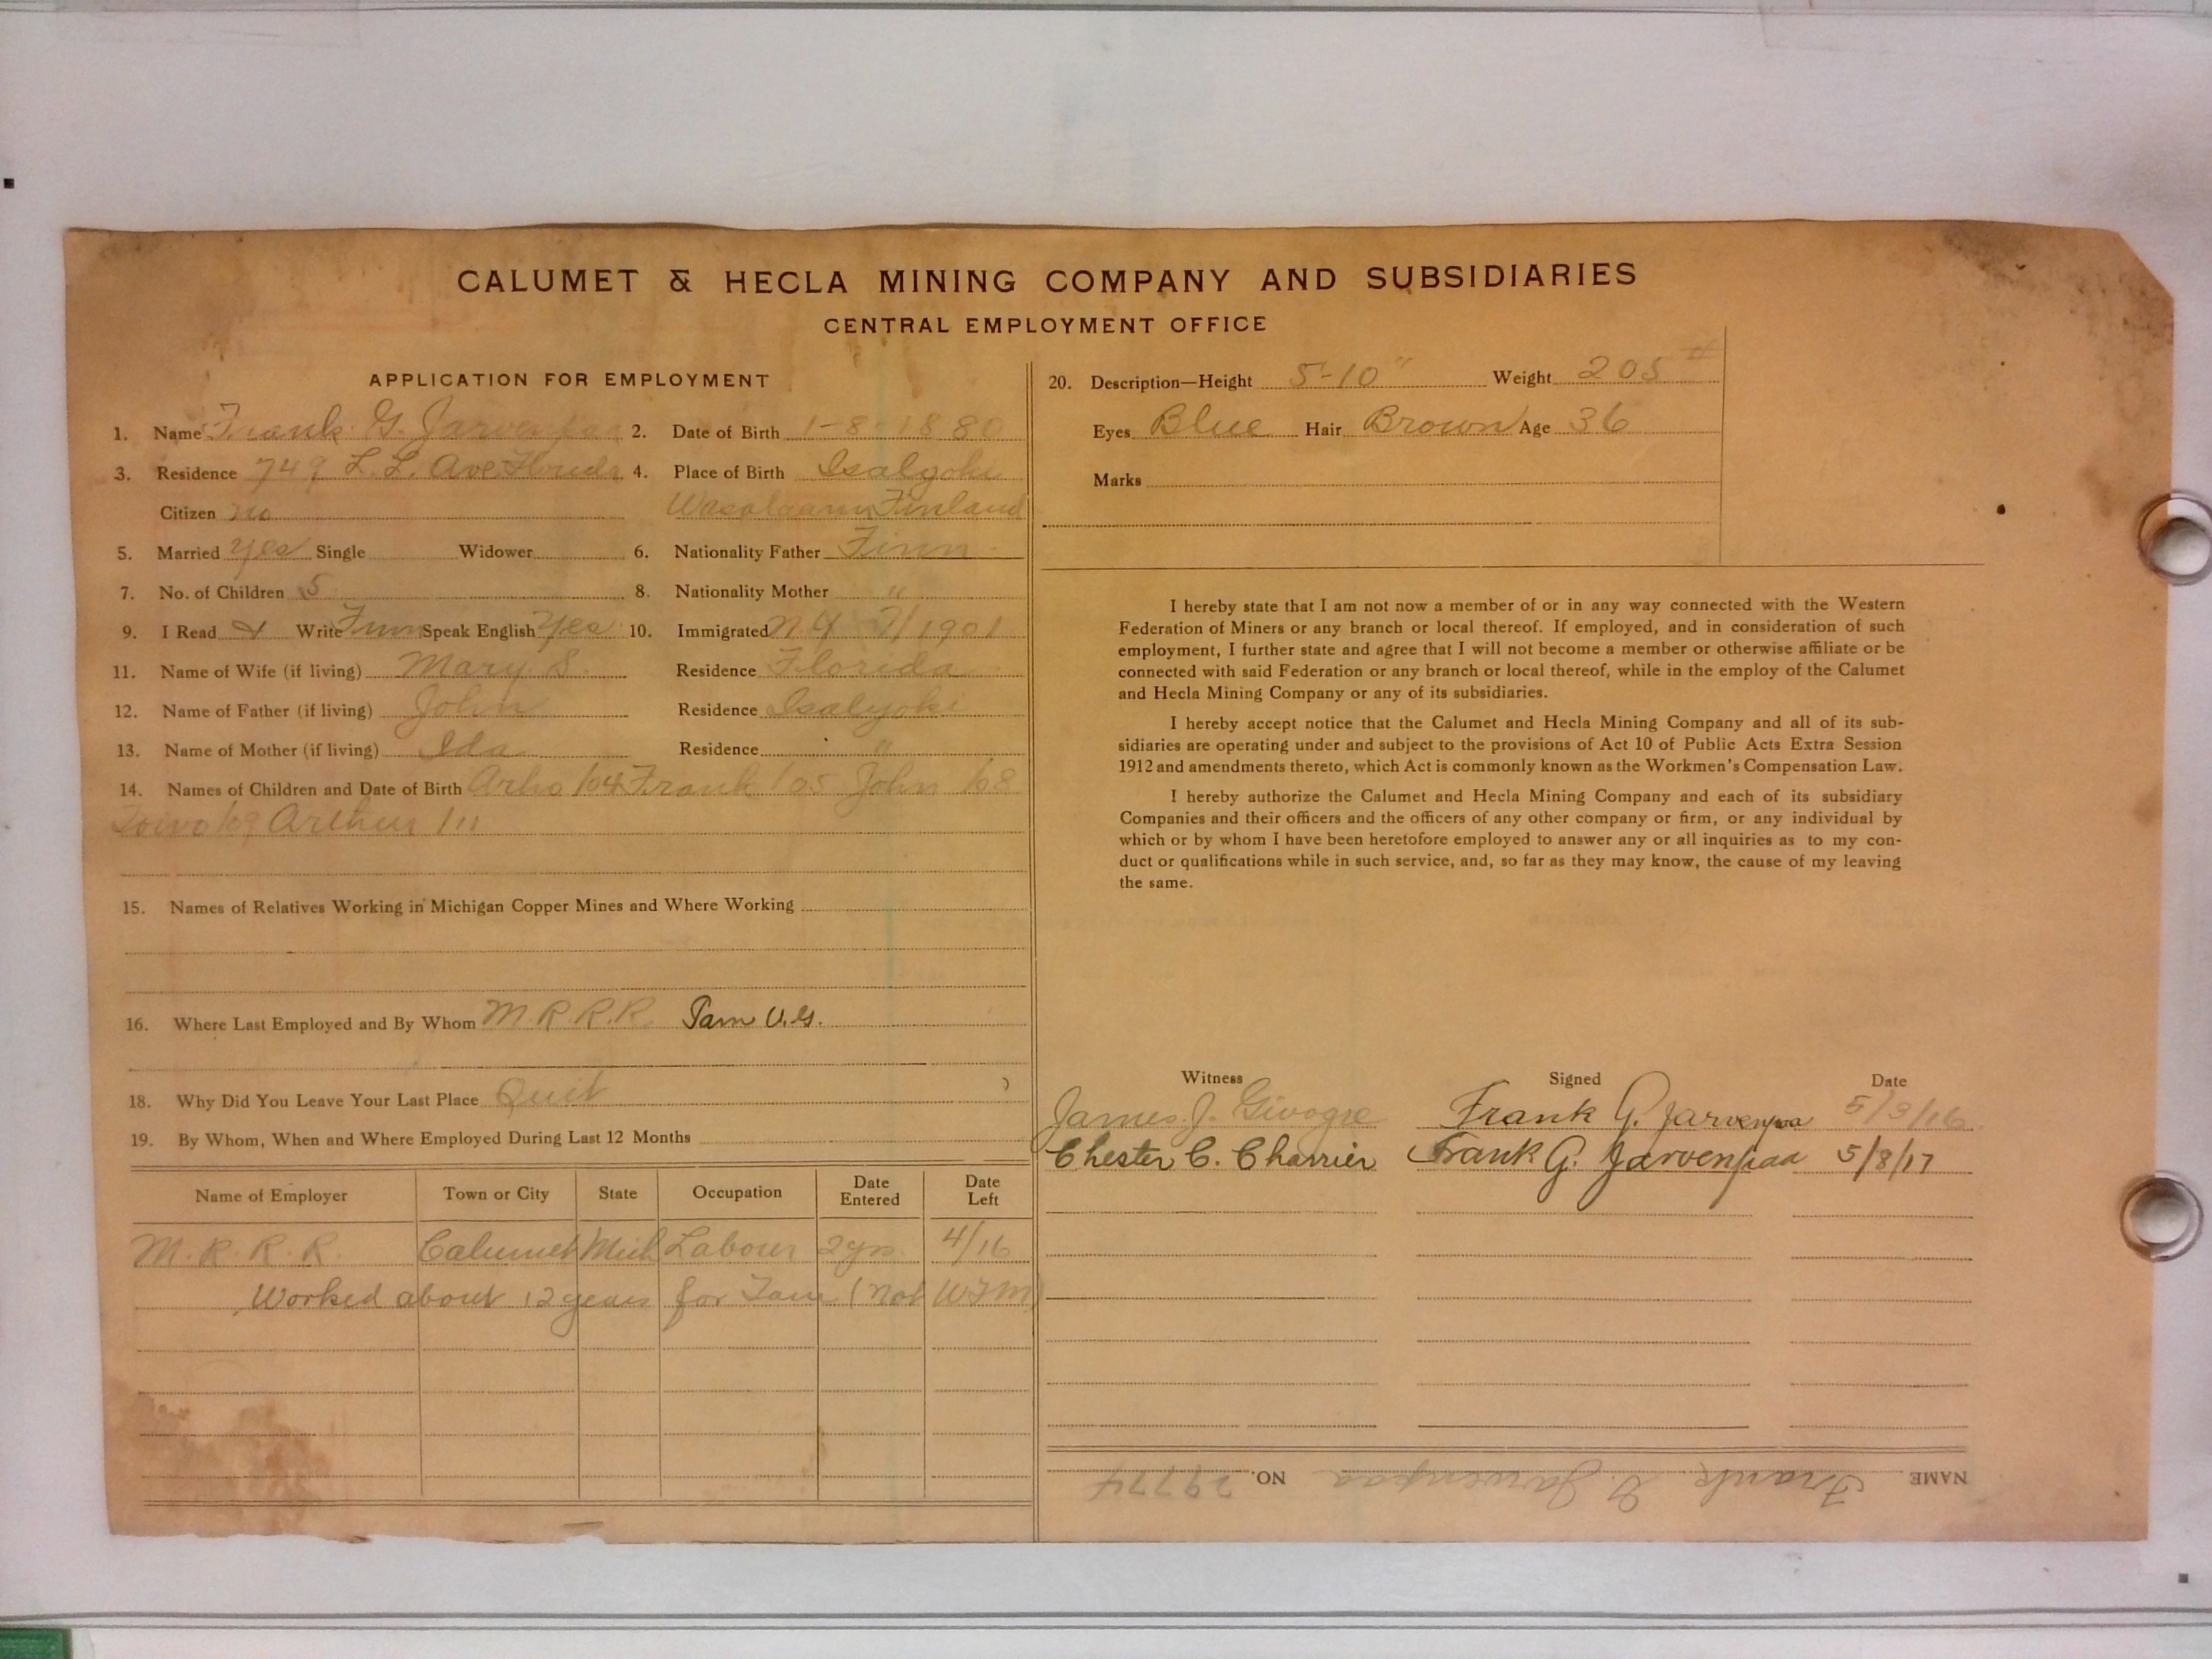 CALUMET & HECLA MINING COMPANY AND SUBSIDIARIES
CENTRAL EMPLOYMENT OFFICE
APPLICATION FOR EMPLOYMENT
1. Name Frank G. Jarvenpaa 2. Date of Birth 1-8-1880
3. Residence 749 L. L. Ave. Florida 4. Place of Birth Isalyoki
Citizen no Wasalaani Finland
5. Married yes Single Widower 6. Nationality Father Finn
7. No. of Children 5 8. Nationality Mother "
9. I Read & Write Finn Speak English Yes 10. Immigrated N.Y. 7/1901
11. Name of Wife (if living) Mary S. Residence Florida
12. Name of Father (if living) John Residence Isalyoki
13. Name of Mother (if living) Ida Residence "
14. Names of Children and Date of Birth Arho /04 Frank /05 John /08
Toivo /09 Arthur /11
15. Names of Relatives Working in Michigan Copper Mines and Where Working
16. Where Last Employed and By Whom M.R.R.R. Tam U.G.
18. Why Did You Leave Your Last Place Quit
19. By Whom, When and Where Employed During Last 12 Months
Name of Employer Town or City State Occupation Date Entered Date Left
M.R.R.R. Calumet Mich Labour 2 yrs. 4/16
Worked about 12 years for Tam (not WFM)
20. Description—Height 5-10" Weight 205 #
Eyes Blue Hair Brown Age 36
Marks
I hereby state that I am not now a member of or in any way connected with the Western
Federation of Miners or any branch or local thereof. If employed, and in consideration of such
employment, I further state and agree that I will not become a member or otherwise affiliate or be
connected with said Federation or any branch or local thereof, while in the employ of the Calumet
and Hecla Mining Company or any of its subsidiaries.
I hereby accept notice that the Calumet and Hecla Mining Company and all of its sub-
sidiaries are operating under and subject to the provisions of Act 10 of Public Acts Extra Session
1912 and amendments thereto, which Act is commonly known as the Workmen's Compensation Law.
I hereby authorize the Calumet and Hecla Mining Company and each of its subsidiary
Companies and their officers and the officers of any other company or firm, or any individual by
which or by whom I have been heretofore employed to answer any or all inquiries as to my con-
duct or qualifications while in such service, and, so far as they may know, the cause of my leaving
the same.
Witness Signed Date
James J. Frank G. Jarvenpaa 5/3/16
Chester C. Charrier Frank G. Jarvenpaa 5/8/17
NAME Frank G. Jarvenpaa NO. 29774